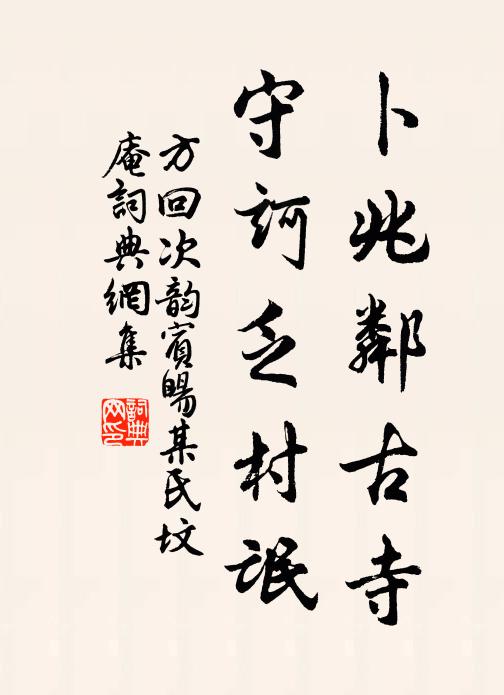 卜兆鄰古寺
守訶乏村氓
方回次韵賓暘某氏坟
庵詞典網集
詞典
网印